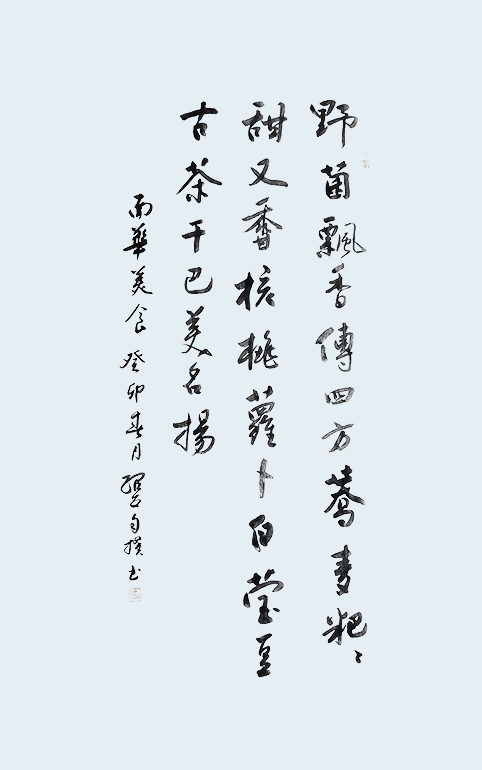 野菌飄香傳四方蕎麦粑々
甜又香核桃蘿卜白莹豆
古茶干巴美名揚
南華美食癸卯春月自撰书